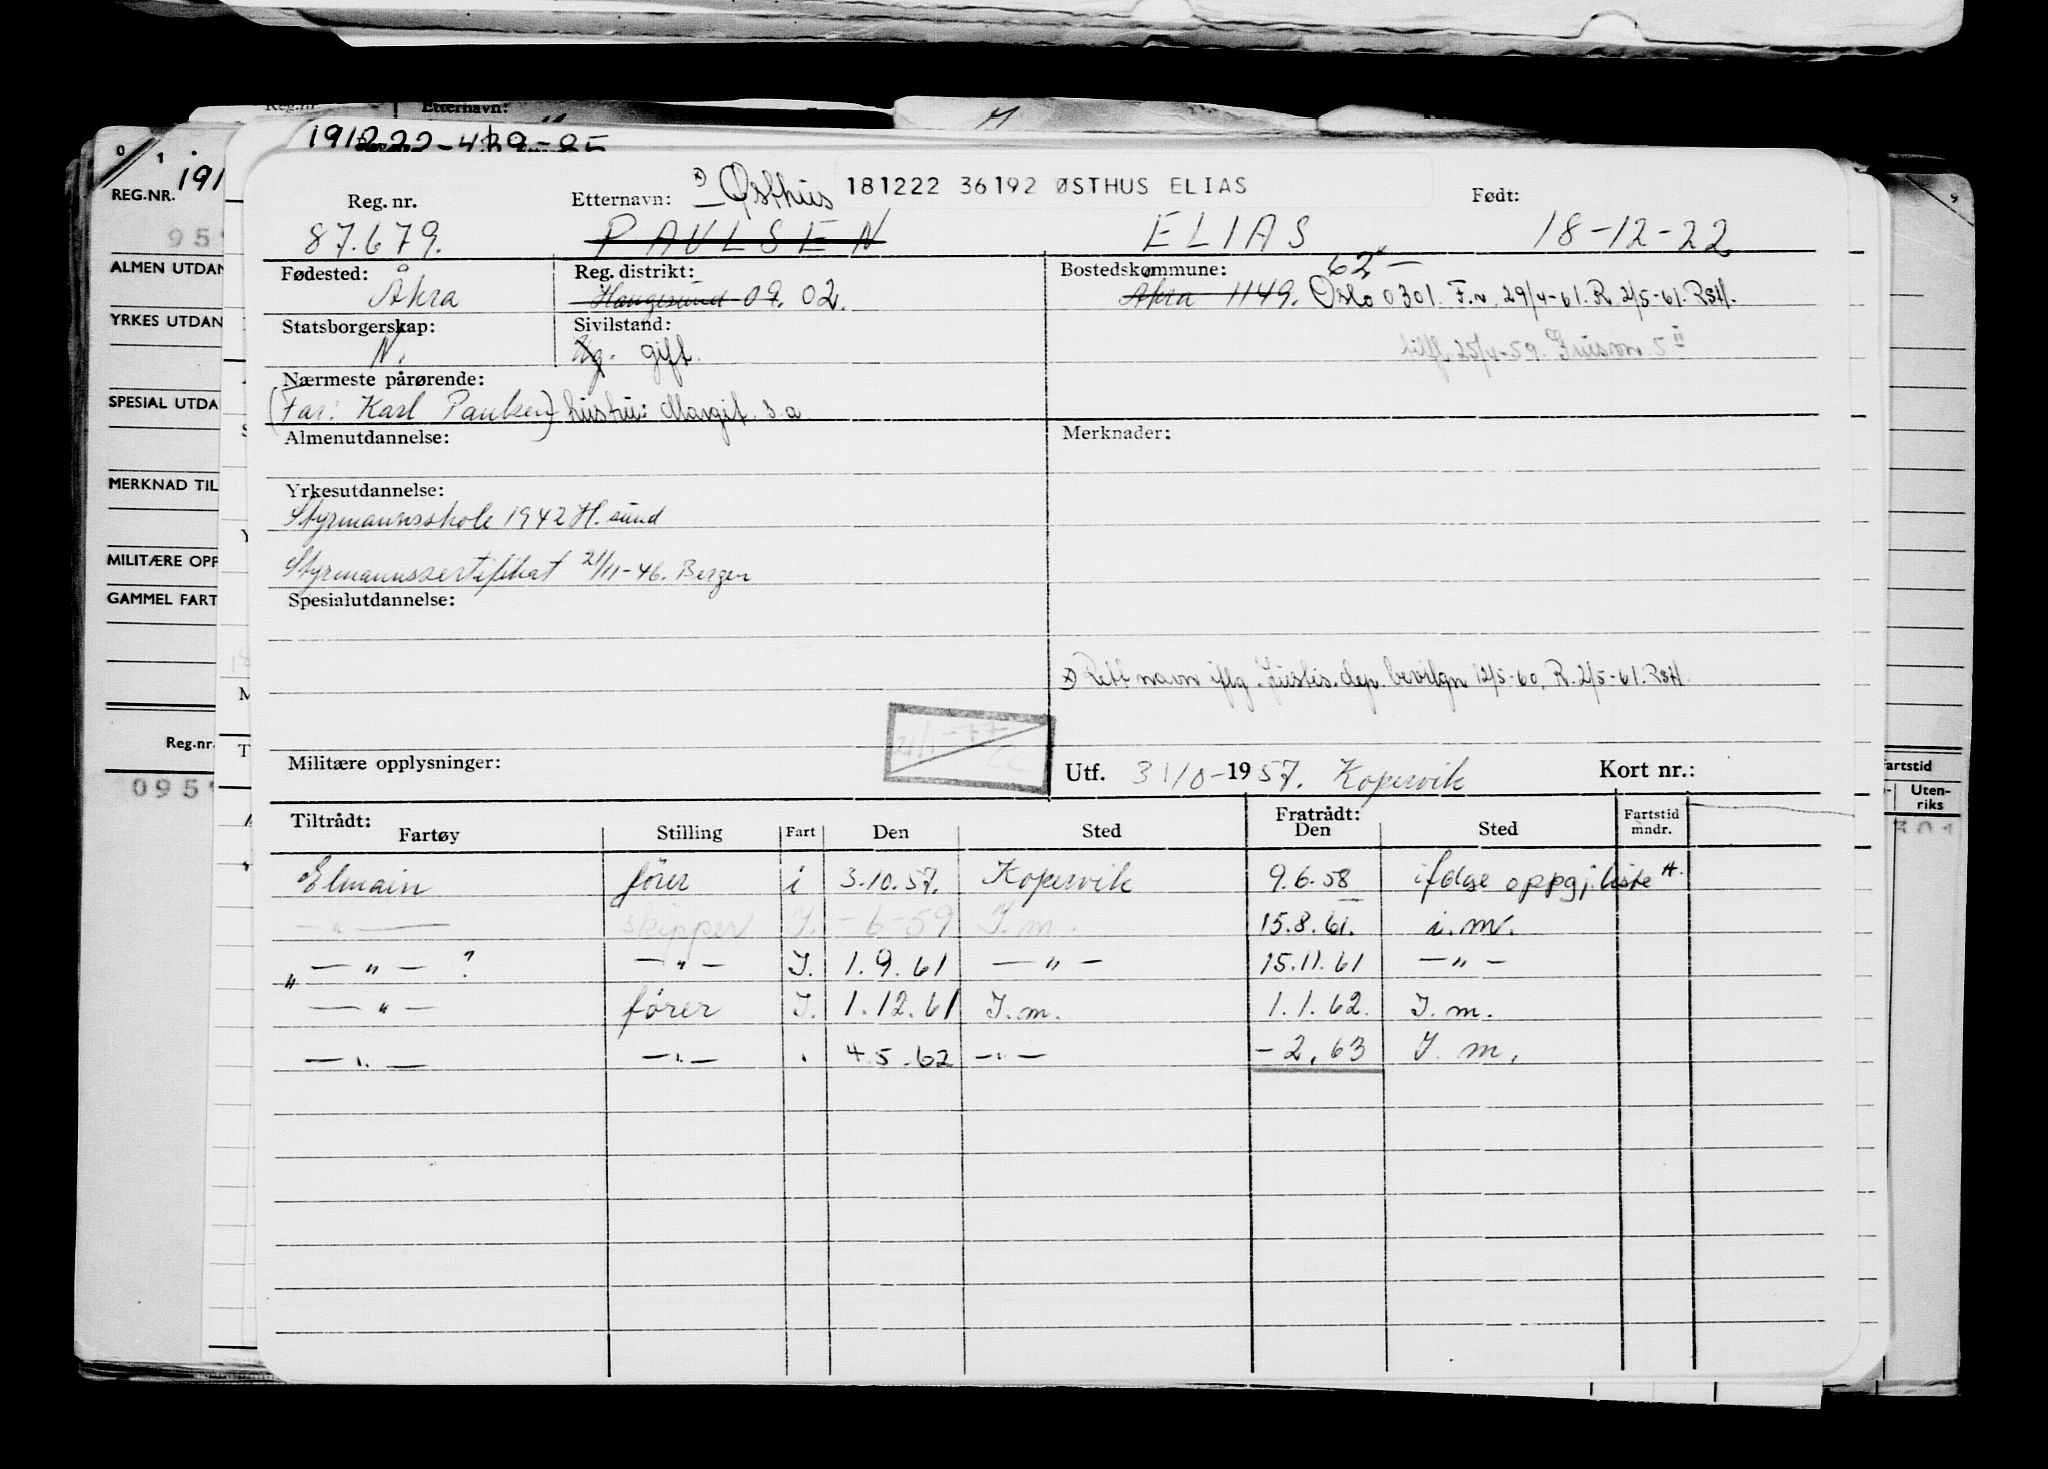 Reg.nr. Etternavn:
191222-429-85
0 1
191
REG.NR.
959
ALMEN UTDAN
YRKES UTDAN
SPESIAL UTDA
MERKNAD TIL
MILITÆRE OPP
GAMMEL FART
Reg.nr.
0959
Reg. nr. Etternavn: x) Østhus 181222 36192 ØSTHUS ELIAS Født:
87.679. PAULSEN ELIAS 18-12-22
Fødested: Reg. distrikt: Bostedskommune: 62
Åkra Haugesund 09. 02. Åkra 1149. Oslo 0301. F.v. 29/4-61. R. 2/5-61. RSH.
Statsborgerskap: Sivilstand:
N. Ug. gift. 25/4-59. 5 II
Nærmeste pårørende:
(Far: Karl Paulsen) hustru: Margit s.a
Almenutdannelse: Merknader:
Yrkesutdannelse:
Styrmannsskole 1942 H.sund
Styrmannssertifikat 21/11-46. Bergen
Spesialutdannelse:
x) Rett navn iflg. Justis.dep. bevilgn 12/5-60. R. 2/5-61. RSH.
21/1-77
22
Militære opplysninger: Utf. 31/0-1957. Kopervik Kort nr.:
Tiltrådt: Fratrådt: Fartstid
Fartøy Stilling Fart Den Sted Den Sted mndr.
Elmain fører i 3.10.57. Kopervik 9.6.58 ifølge oppgj.liste H.
— " — skipper I. - 6-59 I.m. 15.8.61. i.m.
" — " — ? — " — I. 1.9.61 — " — 15.11.61 — " —
— " — fører I. 1.12.61 I.m. 1.1.62. I.m.
— " — — " — . 4.5.62 — " — - 2.63 I.m.
artstid
Uten-
riks